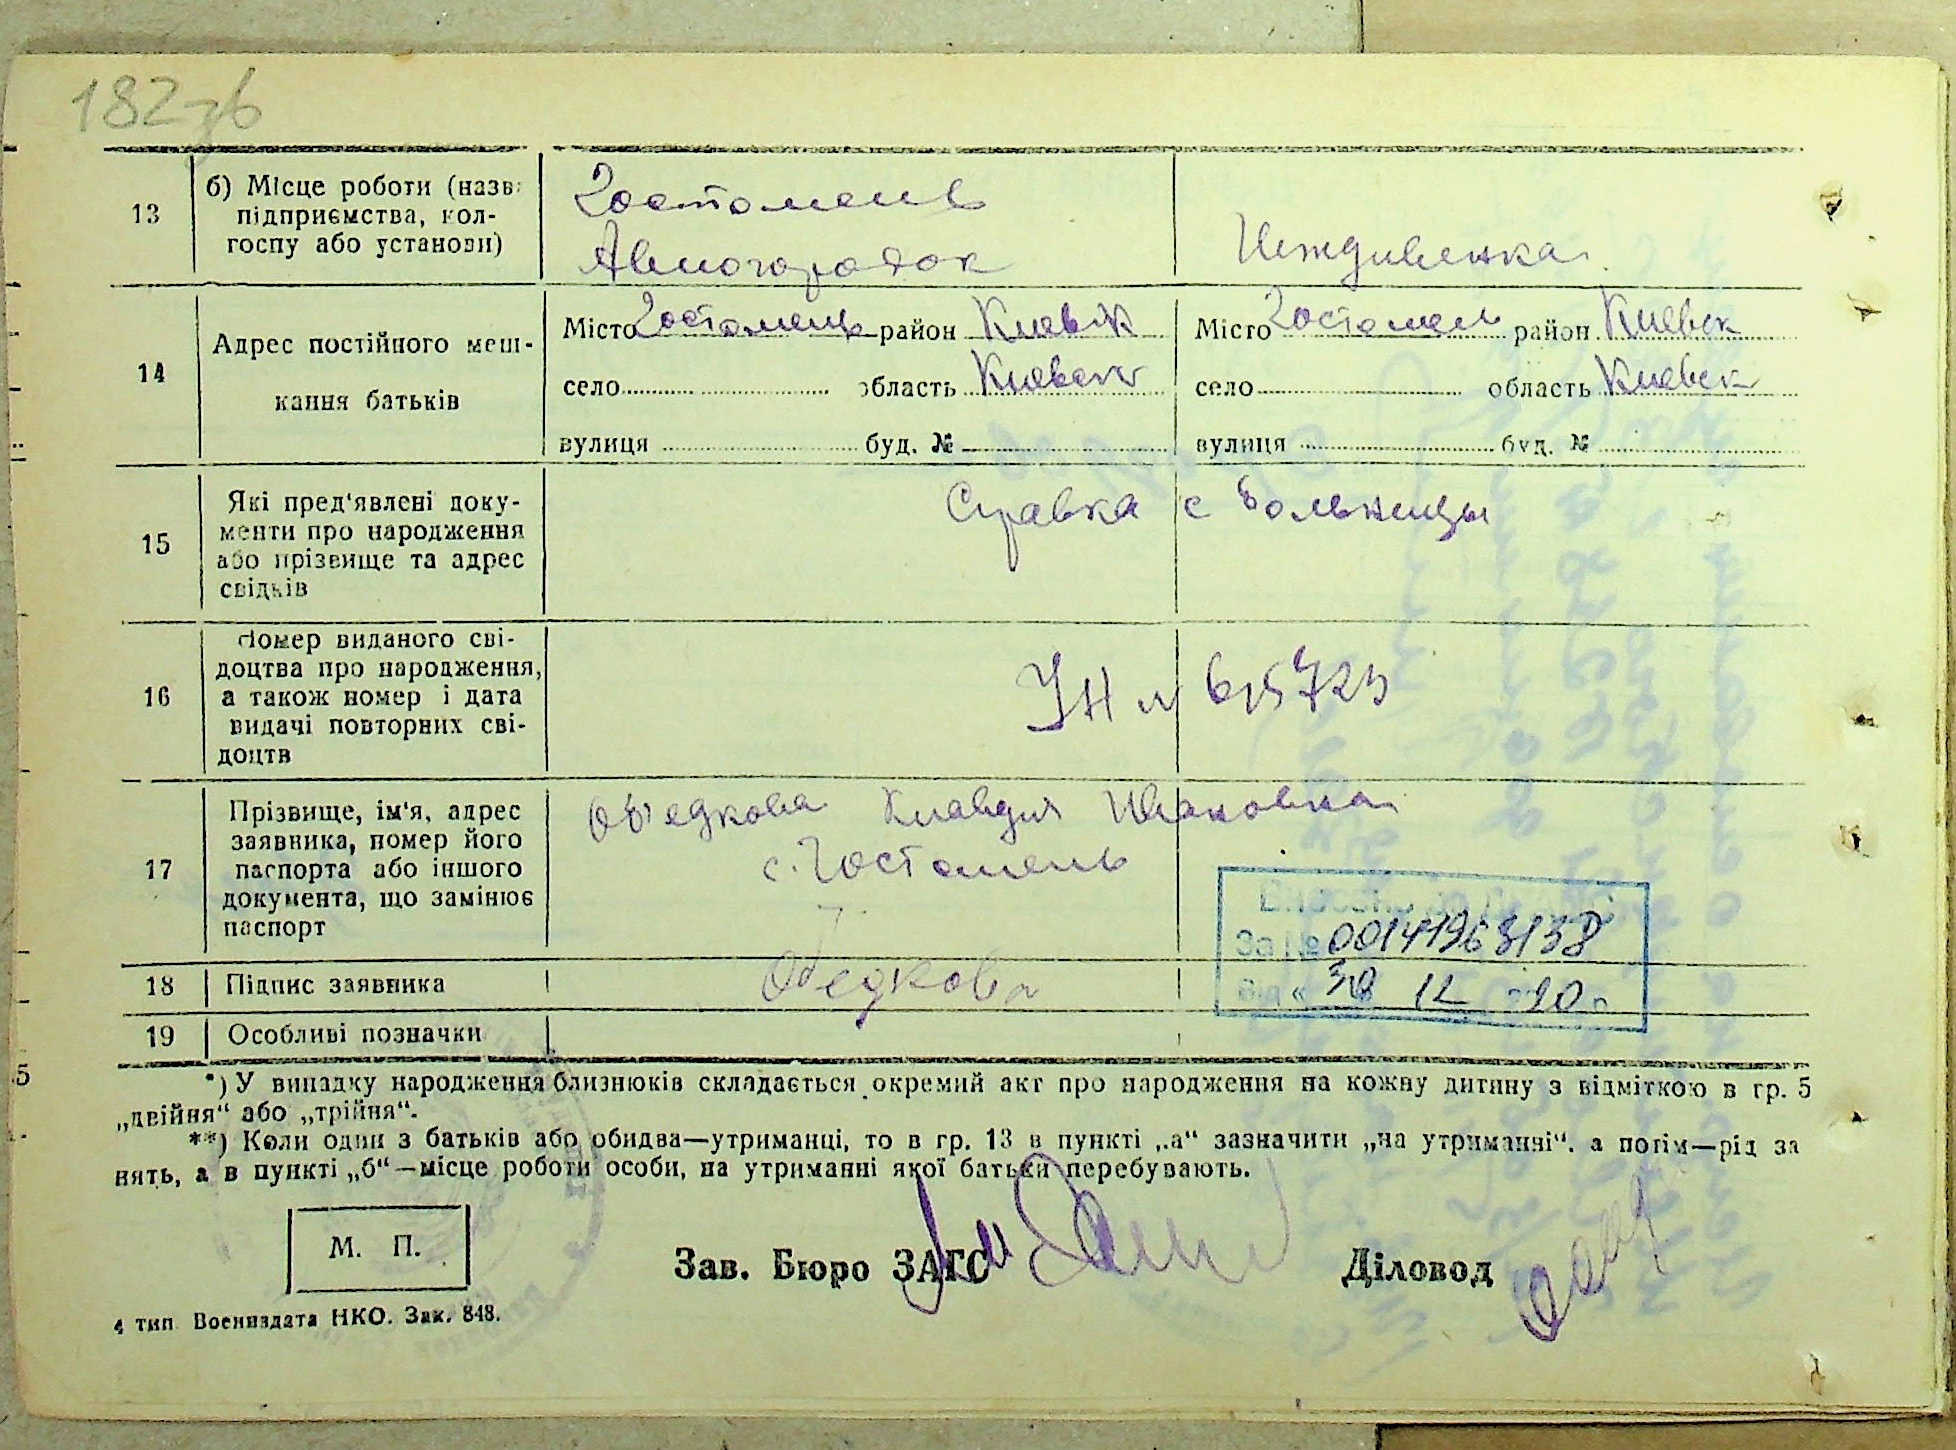 182зв
13
б) Місце роботи (назв
підприємства, кол-
госпу або установи)
Гостомель
Авиогородок
Иждивенка
14
Адрес постійного меш-
кання батьків
Місто Гостомель район Киевск
село область Киевск
вулиця буд. №
Місто Гостомель район Киевск
село область Киевск
вулиця буд. №
15
Які пред'явлені доку-
менти про народження
або прізвище та адрес
свідків
Справка с больницы
16
Номер виданого сві-
доцтва про народження,
а також номер і дата
видачі повторних сві-
доцтв
УН № 615723
17
Прізвище, ім'я, адрес
заявника, номер його
паспорта або іншого
документа, що замінює
паспорт
Об'едкова Клавдия Ивановна
с. Гостомель
За № 00141963138
від « 30 12 20 р
18
Підпис заявника
Обедкова
19
Особливі позначки
*) У випадку народження близнюків складається окремий акт про народження на кожну дитину з відміткою в гр. 5
„двійня“ або „трійня“.
**) Коли один з батьків або обидва—утриманці, то в гр. 13 в пункті „а“ зазначити „на утриманні“. а потім—рід за
нять, а в пункті „б“—місце роботи особи, на утриманні якої батьки перебувають.
М. П.
Зав. Бюро ЗАГС
Діловод
4 тип. Воениздата НКО. Зак. 848.